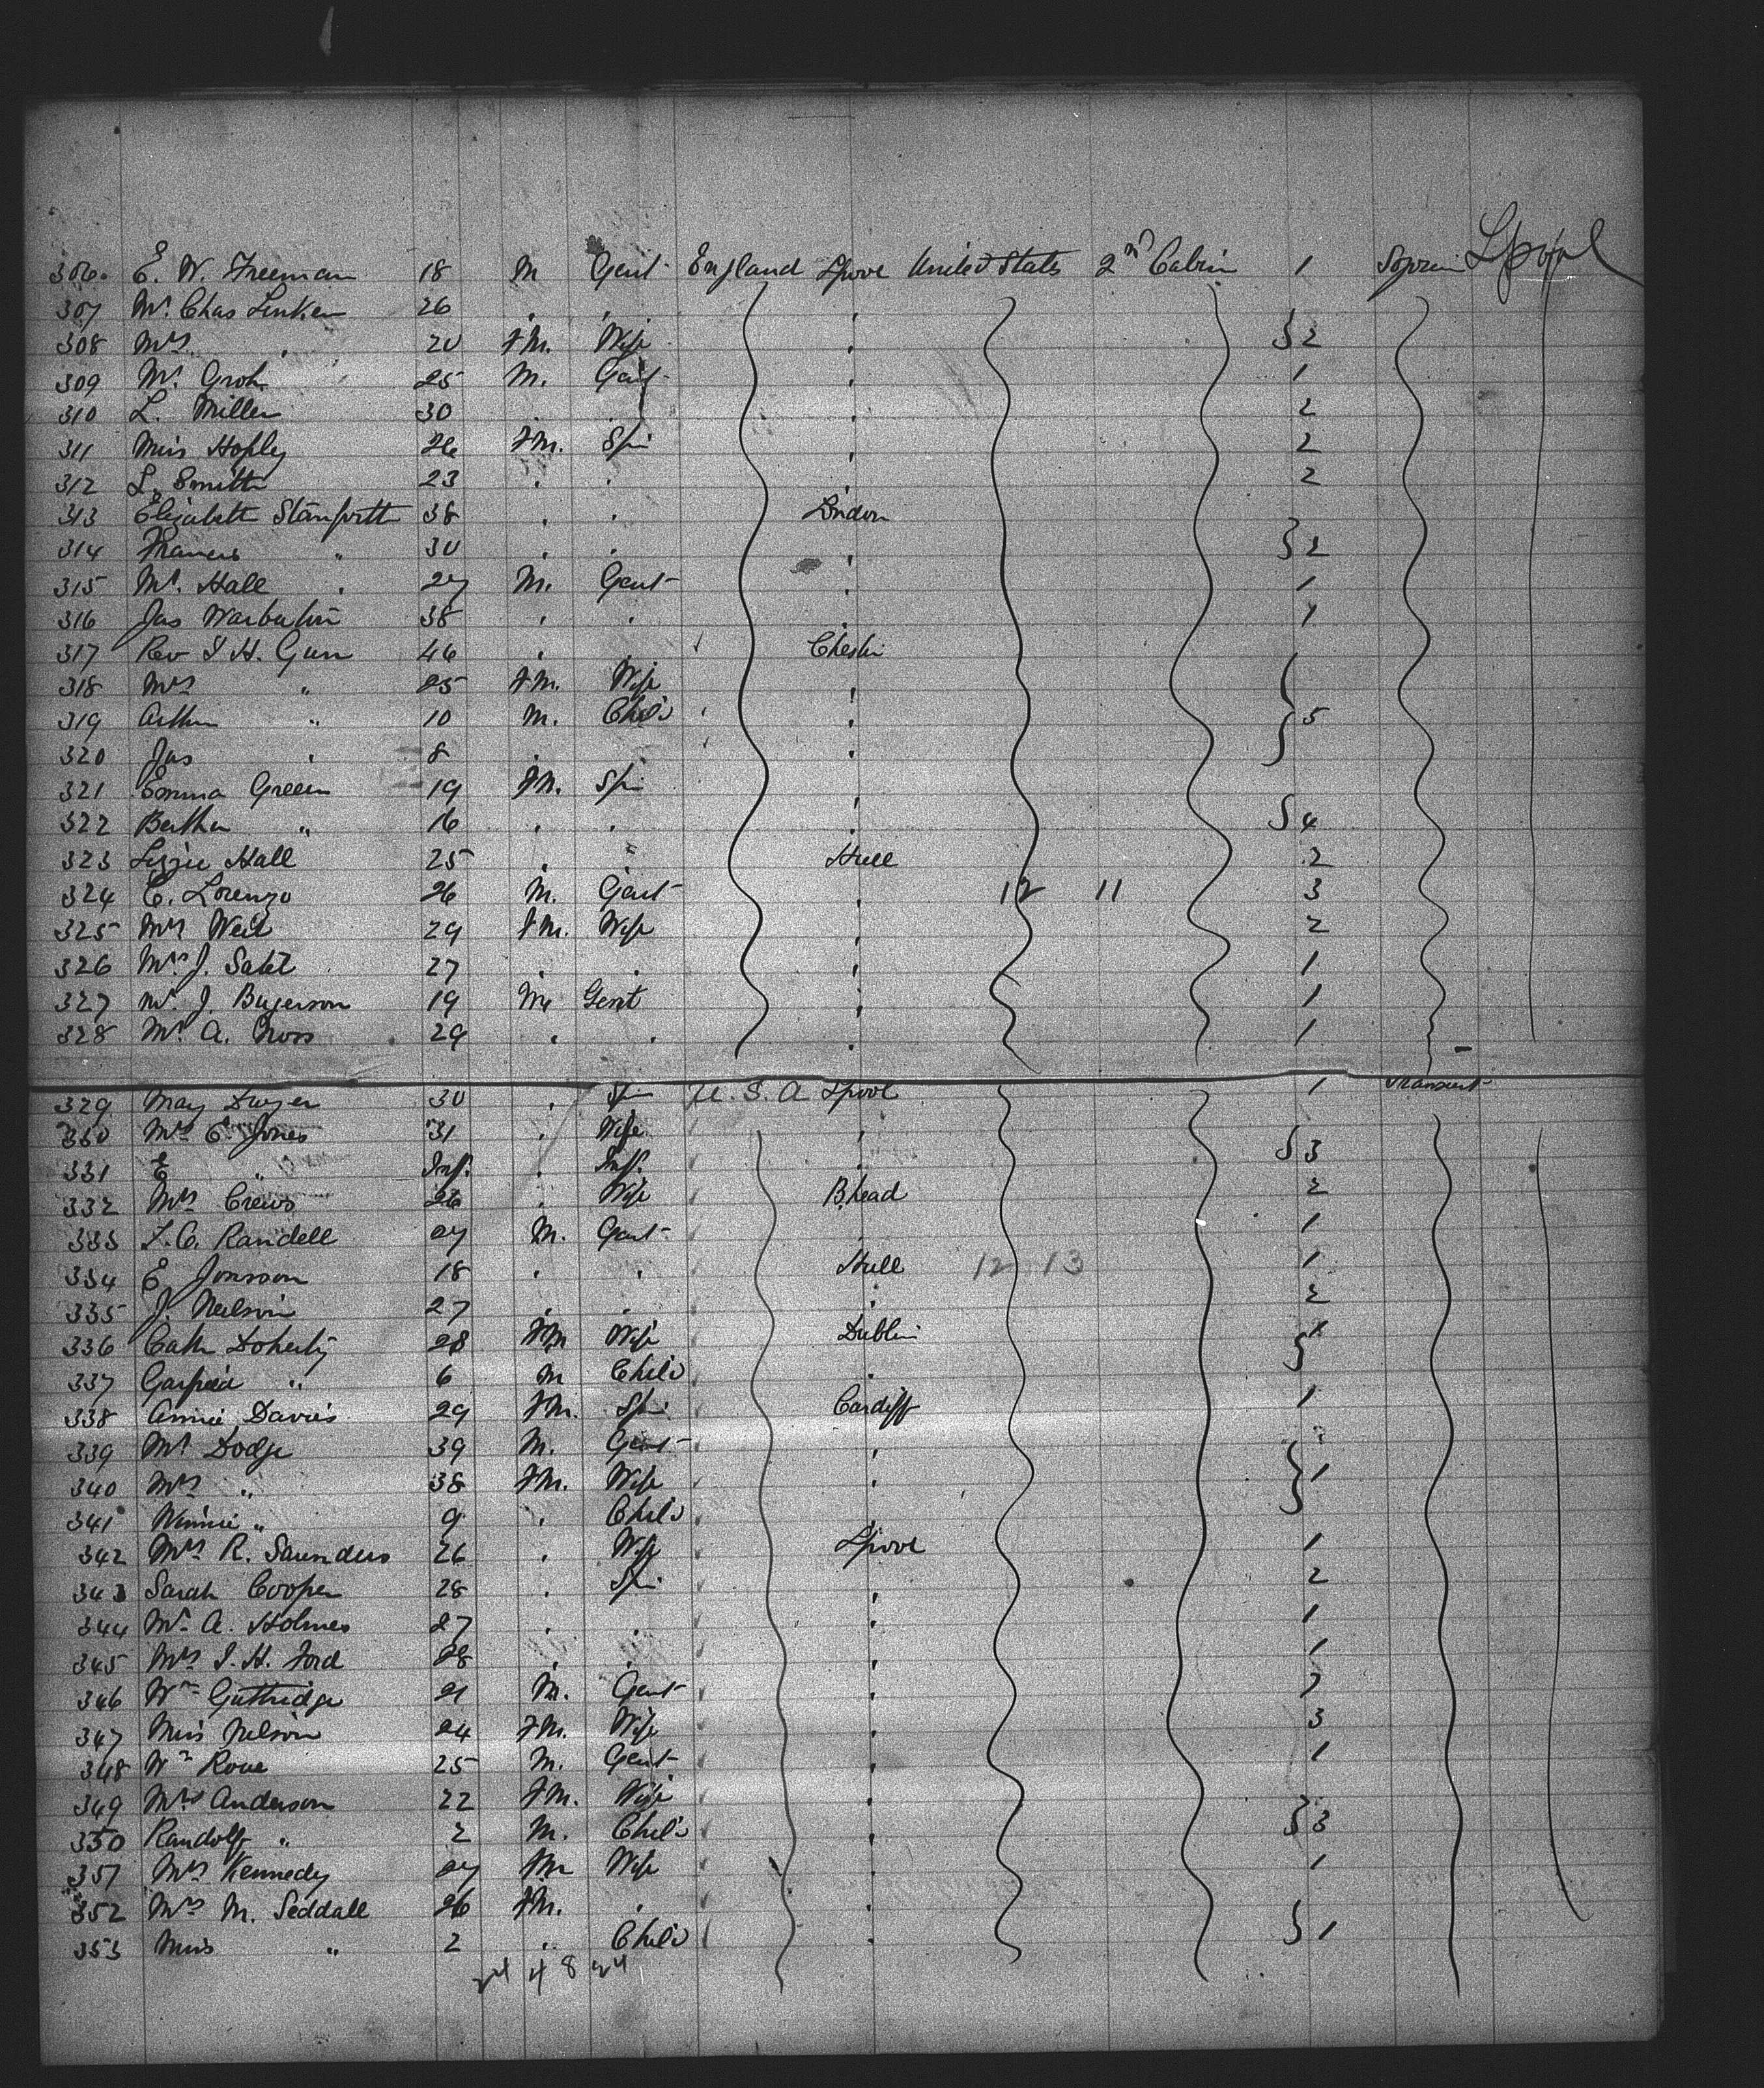 306. E. W. Freeman 18 M Gent England Lpool United States 2nd Cabin 1 Lpool
307 Mr. Chas 26 " "
308 Mrs " 20 FM. Wife " } 2
309 Mr. Groh 25 M. Gent " 1
310 L. Miller 30 " " " 2
311 Miss Hopley 26 FM. Spi " 2
312 L. Smith 23 " " " 2
313 Elizabeth Staniforth 38 " " London
314 Frances " 30 " " " } 2
315 Mr. Hall 27 M. Gent " 1
316 Jas Warburton 38 " " " 1
317 Rev I H. Gun 46 " " Cheshi
318 Mrs " 25 FM. Wife "
319 Arthur " 10 M. Child " } 5
320 Jas " 8 " "
321 Emma Green 19 FM. Spi "
322 Bertha " 16 " " " } 4
323 Lizzie Hall 25 " " Hull 2
324 C. Lorenzo 26 M. Gent " 12 11 3
325 Mrs Weil 29 FM. Wife " 2
326 Mrs J. 27 " " " 1
327 Mr J. 19 M Gent " 1
328 Mr. A. Cross 29 " " " 1
329 May Dwyer 30 " Spi U.S.A Lpool 1 Transient
330 Mrs E. Jones 31 " Wife "
331 E " Inf. " Inf. " } 3
332 Mrs Crews 26 " Wife B.head 2
333 F. C. Randell 27 M. Gent " 1
334 E Jonsson 18 " " Hull 12 13 1
335 J. Neilson 27 " " " 2
336 Cath Doherty 28 FM Wife Dublin } 1
337 Garfield " 6 M Child "
338 Annie Davies 29 FM. Spi Cardiff 1
339 Mr Dodge 39 M. Gent "
340 Mrs " 38 FM. Wife " } 1
341 Winnie " 9 " Child "
342 Mrs R. Saunders 26 " Wife Lpool 1
343 Sarah Cooper 28 " Spi " 2
344 Mrs A. Holmes 27 " " " 1
345 Mrs I. H. Ford 28 " " " 1
346 Wm Guttridge 21 M. Gent "
347 Miss Nelson 24 FM. Wife " 3
348 Wm Rowe 25 M. Gent " 1
349 Mrs Anderson 22 FM. Wife "
350 Randolf " 2 M. Child " } 3
351 Mrs Kennedy 27 Wife " 1
352 Mrs M. Seddall 26 FM. " "
353 Miss " 2 " Child " } 1
24 4 8 24